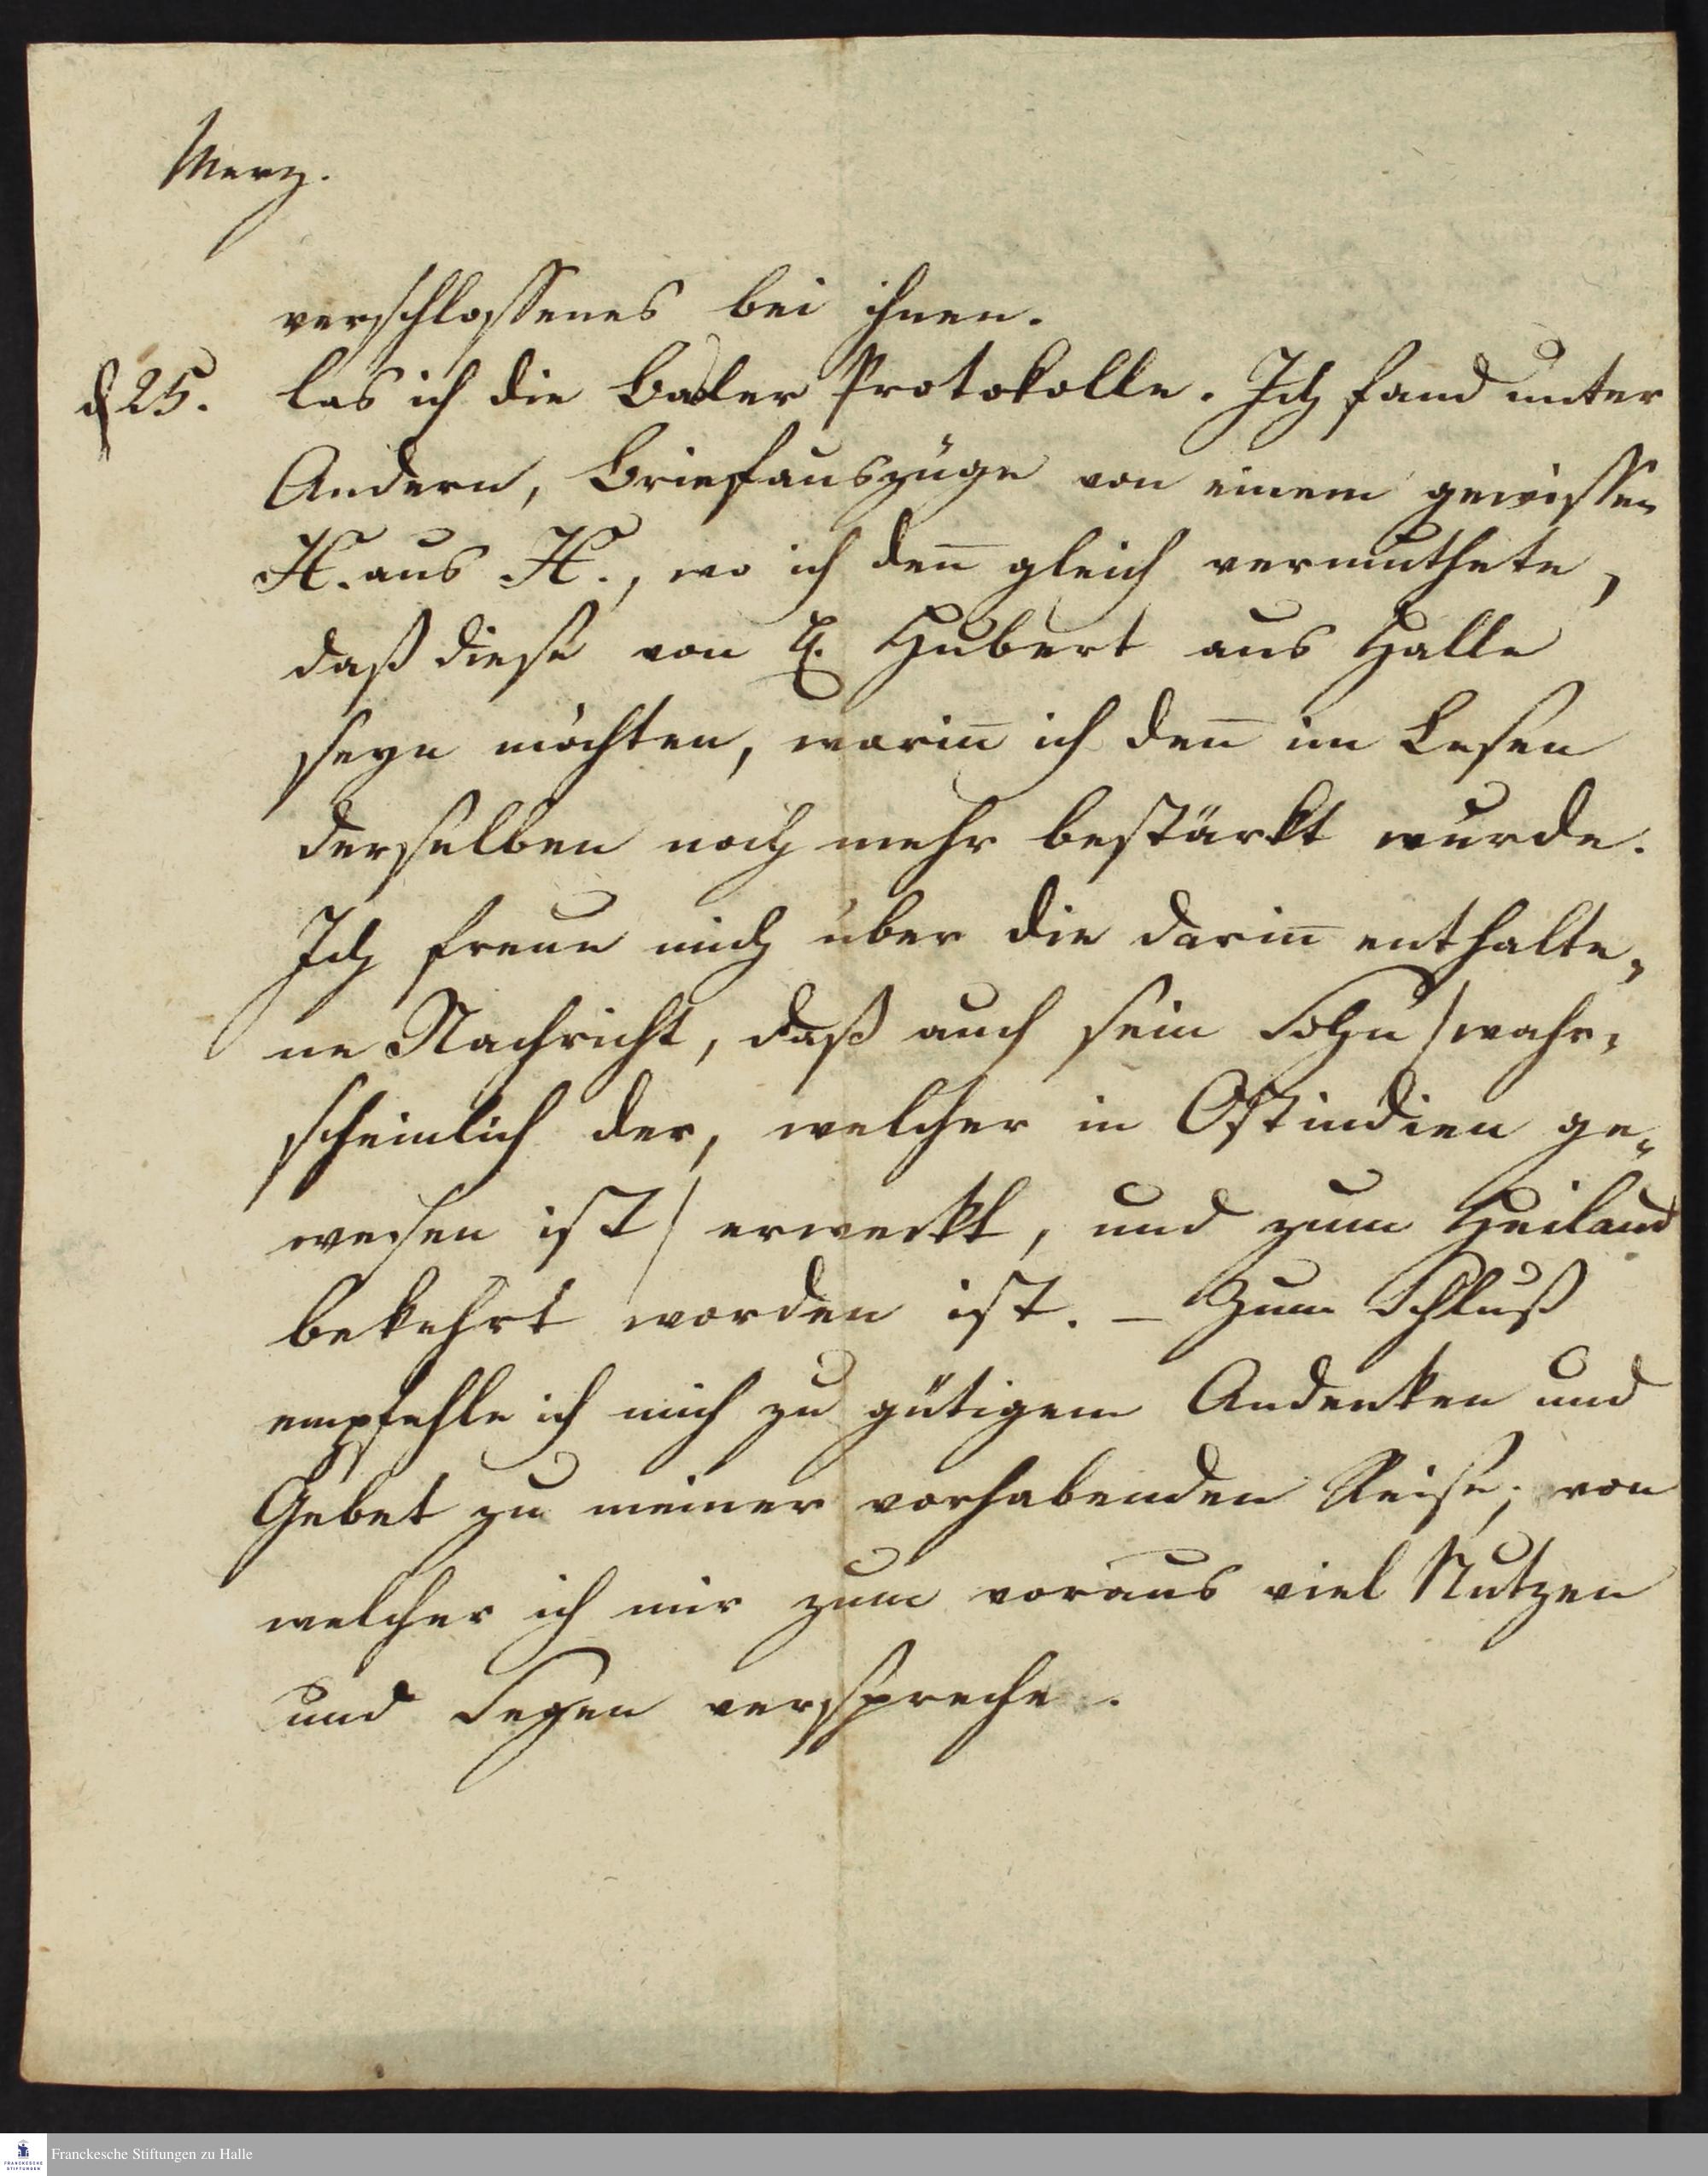 Merz.
verschlossenes bei ihnen.
d 25. las ich die Basler Protokolle. Ich fand unter
Andern, Briefauszüge von einem gewissen
H. aus H., wo ich deñ gleich vermuthete,
daß diese von H. Hubert aus Halle
seyn möchten, woriñ ich deñ im Lesen
derselben noch mehr bestärkt wurde.
Ich freue mich über die dariñ enthalte„
ne Nachricht, daß auch sein Sohn /wahr„
scheinlich der, welcher in Ostindien ge„
wesen ist/ erweckt, und zum Heiland
bekehrt worden ist. – Zum Schluß
empfehle ich mich zu gütigem Andenken und
Gebet zu meiner vorhabenden Reise; von
welcher ich mir zum voraus viel Nutzen
und Segen verspreche.
Franckesche Stiftungen zu Halle
FRANCKESCHE
STIFTUNGEN